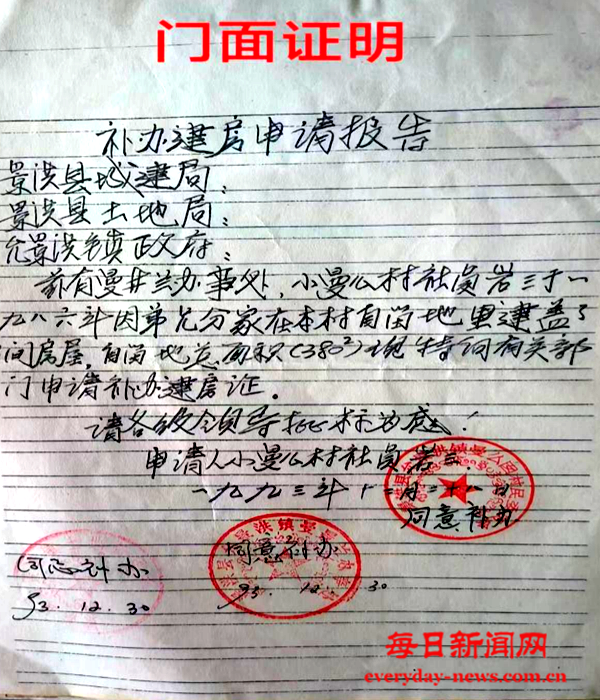 门面证明
补办建房申请报告
景洪县城建局：
景洪县土地局：
允景洪镇政府：
兹有曼井兰办事处，小曼么村社员岩三于一
九八六年因弟兄分家在本村自留地里建盖了
间房屋，自留地总面积(380²)现特向有关部
门申请补办建房证。
请各级领导批标为感！
申请人小曼么村社员岩三
一九九三年十一月二十一日
同意补办
同意补办
93. 12. 30
同意补办
93. 12. 30
每日新闻网
everyday-news.com.cn